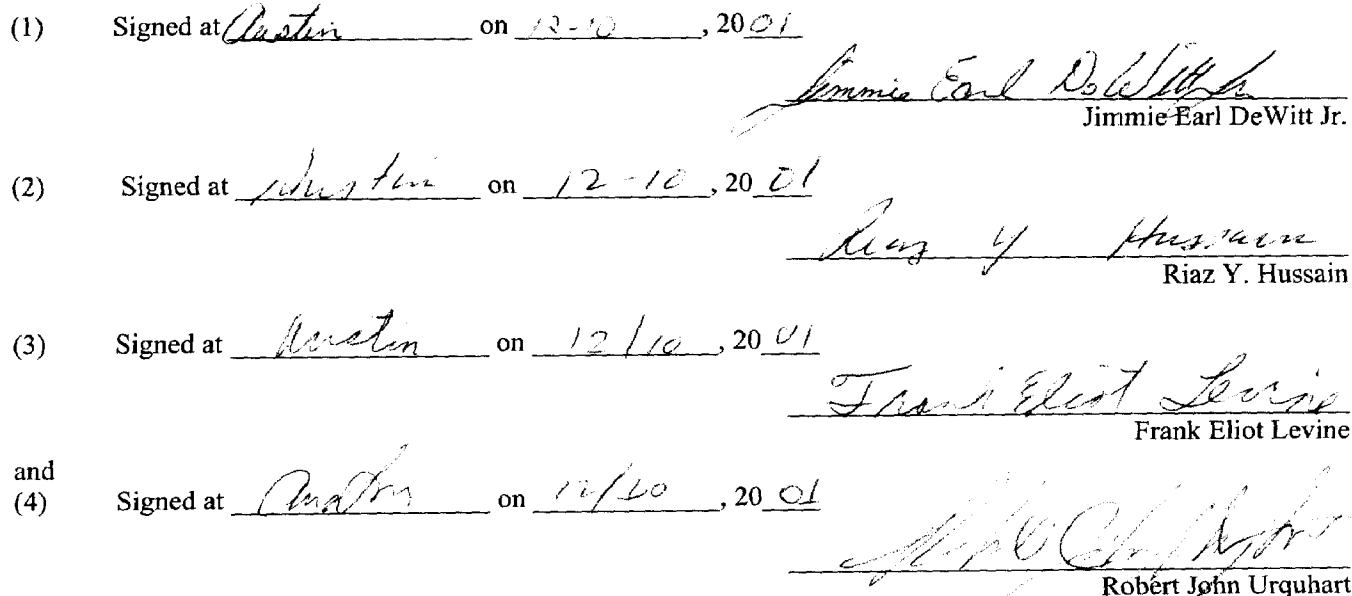 (1) Signed at Austin on 12-10, 2001
Jimmie Earl DeWitt Jr.
Jimmie Earl DeWitt Jr.
(2) Signed at Austin on 12-10, 2001
Riaz Y Hussain
Riaz Y. Hussain
(3) Signed at Austin on 12/10, 2001
Frank Eliot Levine
Frank Eliot Levine
and
(4) Signed at Austin on 12/10, 2001
Robert John Urquhart